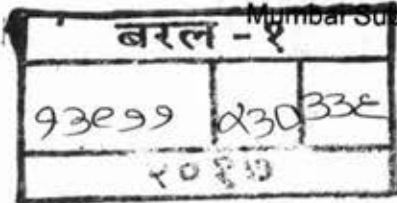 Mumbai
बरल - १
१३९११ ४३० ३३६
२०१७